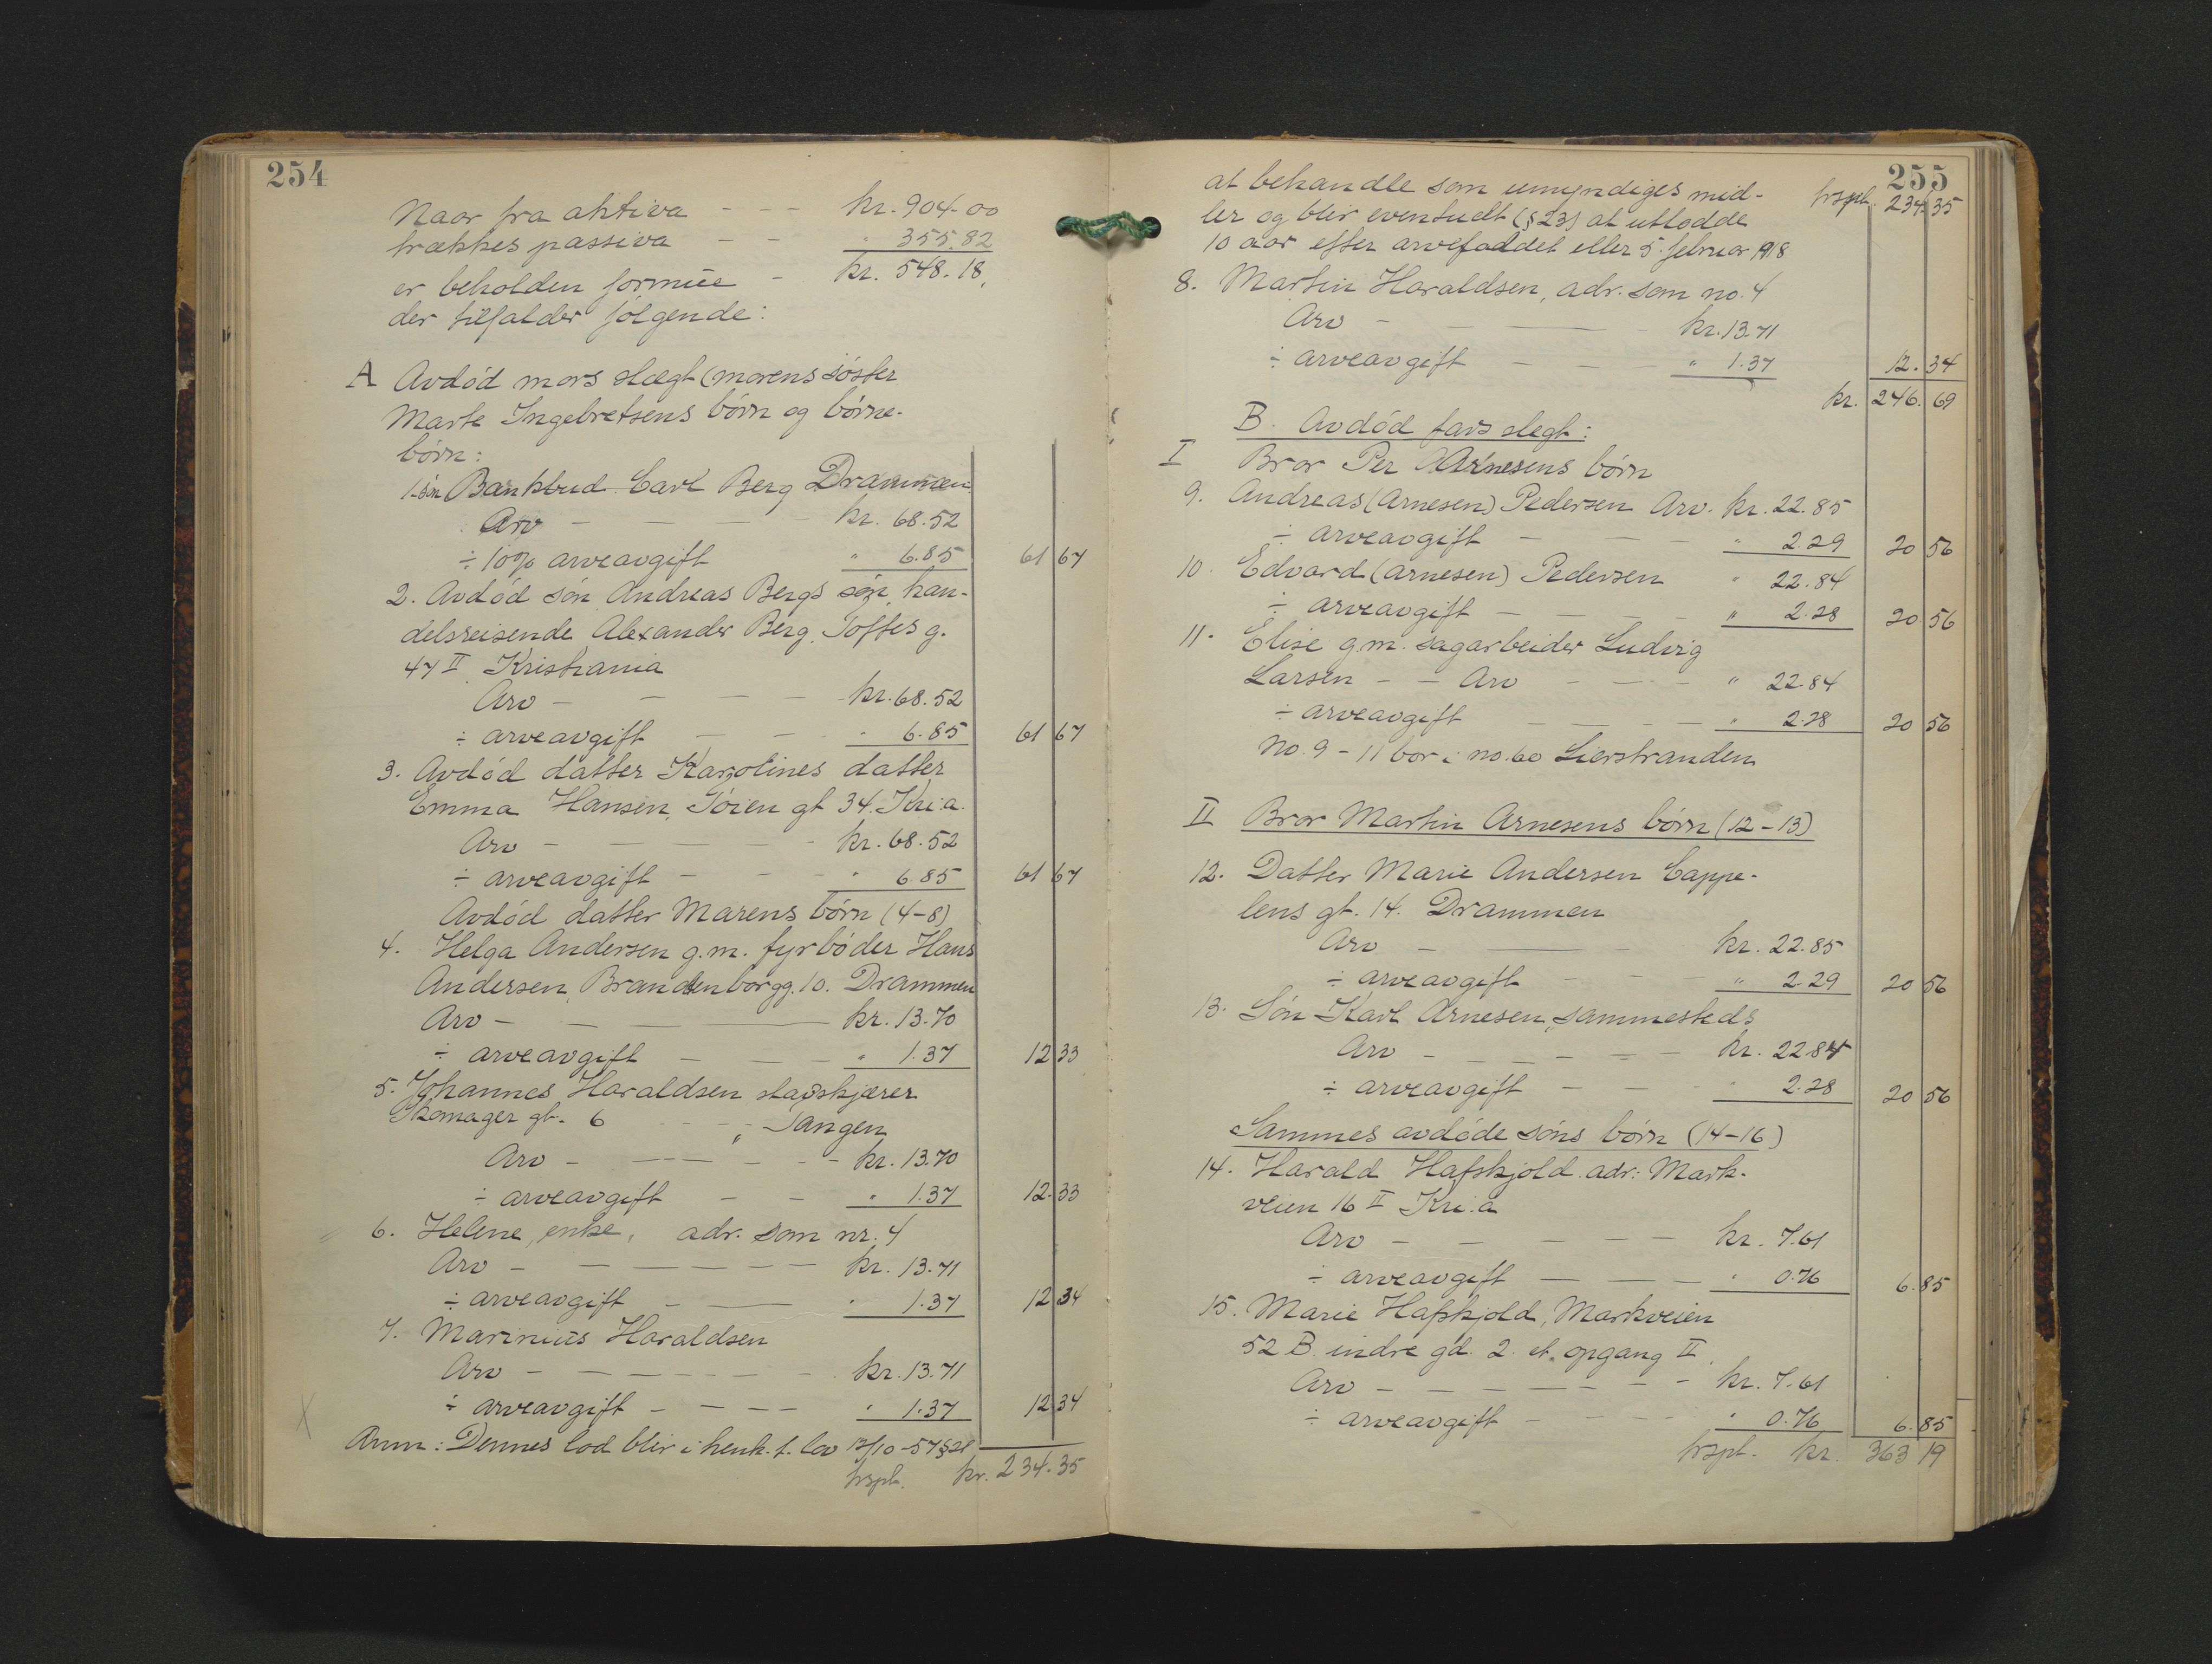 254
Naar fra aktiva - - - kr. 904.00
trækkes passiva - - " 355.82
er beholden formue - kr. 548.18,
der tilfalder følgende:
A Avdød mors slægt (morens søster
Marte Ingebretsens børn og børne-
børn:
1. søn Bankbud Carl Berg Drammen
Arv - - - kr. 68.52
÷ 10% arveavgift " 6.85 61 67
2. Avdød søn Andreas Bergs søn, han-
delsreisende Alexander Berg, Toftes g.
47 II Kristiania
Arv - - - - kr. 68.52
÷ arveavgift - - " 6.85 61 67
3. Avdød datter Karolines datter
Emma Hansen, Tøien gt 34. Kri.a.
Arv - - - - - kr. 68.52
÷ arveavgift - - - " 6.85 61 67
Avdød datter Marens børn (4-8)
4. Helga Andersen g.m. fyrbøder Hans
Andersen, Brandenborgg. 10. Drammen
Arv - - - - kr. 13.70
÷ arveavgift - - - " 1.37 12 33
5. Johannes Haraldsen stavskjærer
Skomager gt. 6 - - - " Tangen
Arv - - - - - - kr. 13.70
÷ arveavgift - - " 1.37 12.33
6. Helene, enke, adr. som nr. 4
Arv - - - - - - kr. 13.71
÷ arveavgift - - " 1.37 12 34
7. Marinius Haraldsen
Arv - - - - - - - kr. 13.71
÷ arveavgift - - - - " 1.37 12 34
Anm: Dennes lod blir i henh. t. lov 12/10-57 § 21
trspt. kr. 234.35
255
at behandle som umyndiges mid- trspt. 234.35
ler og blir eventuelt (§ 23) at utlodde
10 aar efter arvefaldet eller 5. februar 1918
8. Martin Haraldsen, adr. som no. 4
Arv - - - - kr. 13.71
÷ arveavgift - - - " 1.37 12.34
kr. 246.69
B. Avdød fars slegt:
I Bror Per Arnesens børn
9. Andreas (Arnesen) Pedersen Arv. kr. 22.85
÷ arveavgift - - - " 2.29 20 56
10. Edvard (Arnesen) Pedersen " 22.84
÷ arveavgift - - - " 2.28 20 56
11. Elise g.m. sagarbeider Ludvig
Larsen - - Arv - - - " 22.84
÷ arveavgift - - - - " 2.28 20 56
No. 9 - 11 bor i no. 60 Lierstranden
II Bror Martin Arnesens børn (12-13)
12. Datter Marie Andersen Cappe-
lens gt. 14. Drammen
Arv - - - kr. 22.85
÷ arveavgift - - " 2.29 20 56
13. Søn Karl Arnesen, sammesteds
Arv - - - - - - kr. 22.84
÷ arveavgift - - " 2.28 20 56
Sammes avdøde søns børn (14-16)
14. Harald Hafskjold adr: Mark-
veien 16 II Kri.a
Arv - - - - - - kr. 7.61
÷ arveavgift - - - " 0.76 6.85
15. Marie Hafskjold, Markveien
52 B. indre gd. 2. et. opgang II.
Arv - - - - - - - kr. 7.61
÷ arveavgift - - - - " 0.76 6.85
trspt. kr. 363 19